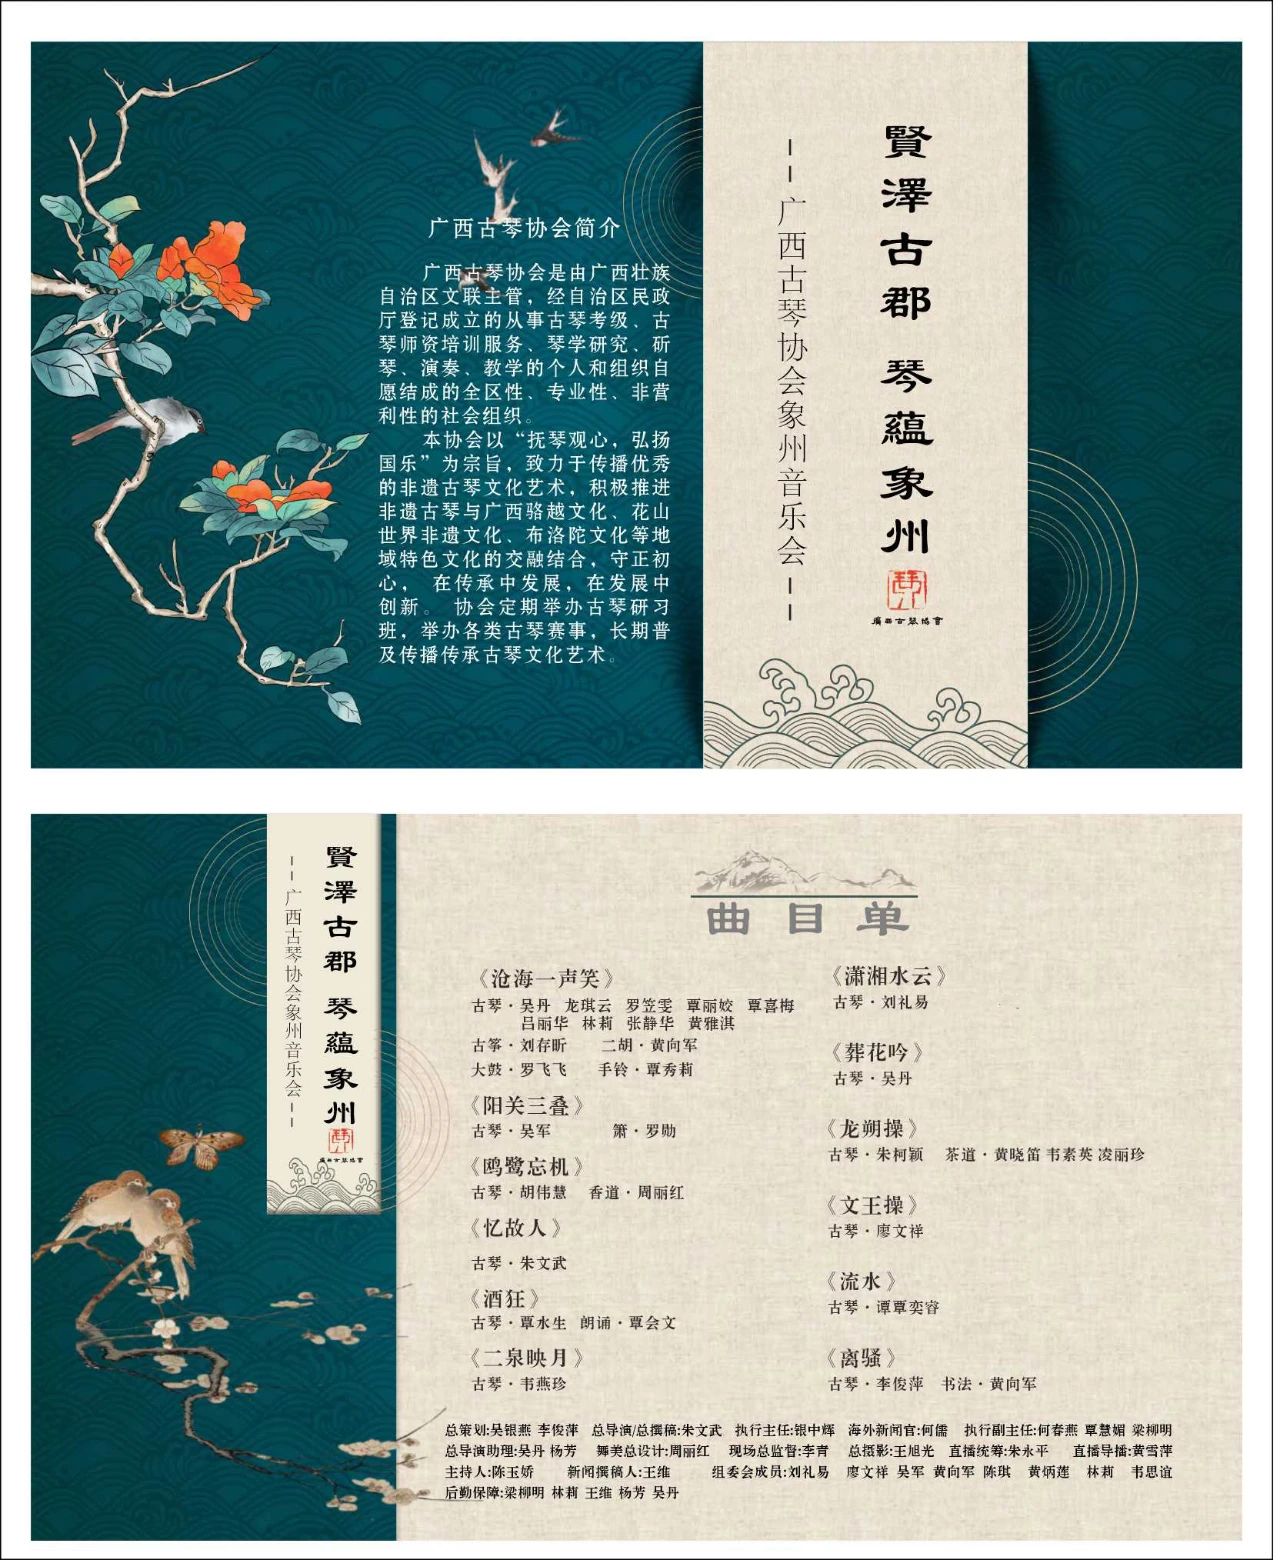 广西古琴协会简介
广西古琴协会是由广西壮族
自治区文联主管，经自治区民政
厅登记成立的从事古琴考级、古
琴师资培训服务、琴学研究、斫
琴、演奏、教学的个人和组织自
愿结成的全区性、专业性、非营
利性的社会组织。
本协会以“抚琴观心，弘扬
国乐”为宗旨，致力于传播优秀
的非遗古琴文化艺术，积极推进
非遗古琴与广西骆越文化、花山
世界非遗文化、布洛陀文化等地
域特色文化的交融结合，守正初
心， 在传承中发展，在发展中
创新。 协会定期举办古琴研习
班，举办各类古琴赛事，长期普
及传播传承古琴文化艺术。
賢澤古郡 琴蘊象州
--广西古琴协会象州音乐会--
廣西古琴協會
賢澤古郡 琴蘊象州
--广西古琴协会象州音乐会--
廣西古琴協會
曲目单
《沧海一声笑》
古琴·吴丹 龙琪云 罗笠雯 覃丽姣 覃喜梅
吕丽华 林莉 张静华 黄雅淇
古筝·刘存昕 二胡·黄向军
大鼓·罗飞飞 手铃·覃秀莉
《阳关三叠》
古琴·吴军 箫·罗勋
《鸥鹭忘机》
古琴·胡伟慧 香道·周丽红
《忆故人》
古琴·朱文武
《酒狂》
古琴·覃水生 朗诵·覃会文
《二泉映月》
古琴·韦燕珍
《潇湘水云》
古琴·刘礼易
《葬花吟》
古琴·吴丹
《龙朔操》
古琴·朱柯颖 茶道·黄晓笛 韦素英 凌丽珍
《文王操》
古琴·廖文祥
《流水》
古琴·谭覃奕睿
《离骚》
古琴·李俊萍 书法·黄向军
总策划:吴银燕 李俊萍 总导演/总撰稿:朱文武 执行主任:银中辉 海外新闻官:何儒 执行副主任:何春燕 覃慧媚 梁柳明
总导演助理:吴丹 杨芳 舞美总设计:周丽红 现场总监督:李育 总摄影:王旭光 直播统筹:朱永平 直播导播:黄雪萍
主持人:陈玉娇 新闻撰稿人:王维 组委会成员:刘礼易 廖文祥 吴军 黄向军 陈琪 黄炳莲 林莉 韦思谊
后勤保障:梁柳明 林莉 王维 杨芳 吴丹